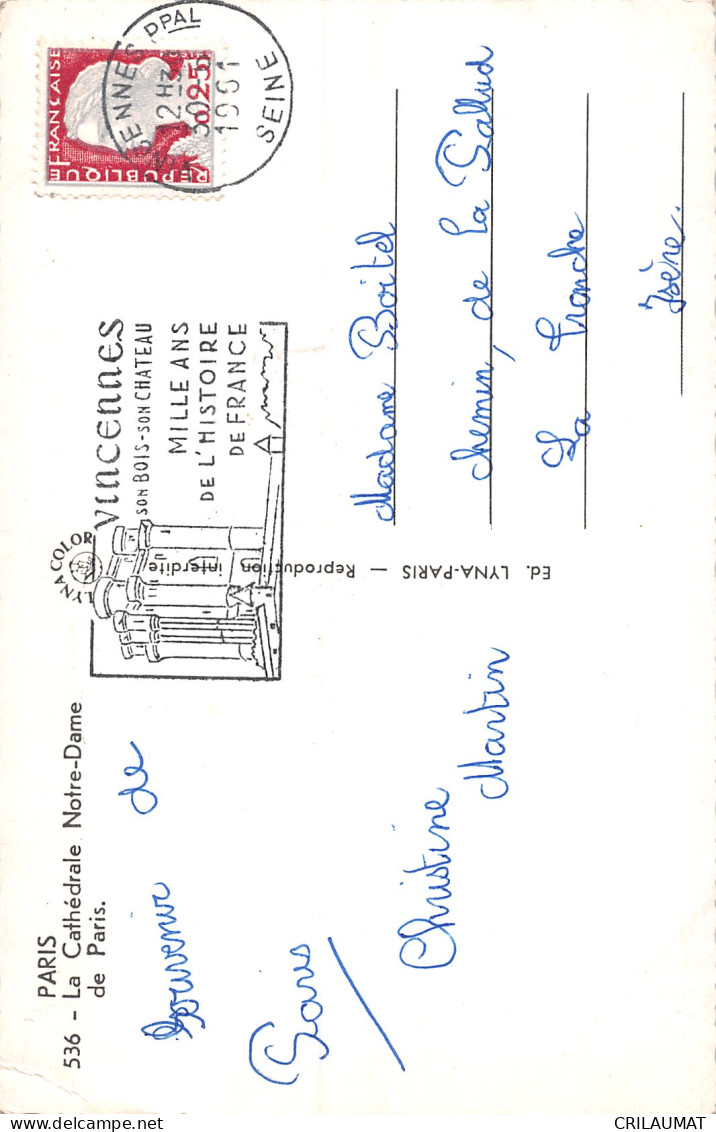 PARIS
536 - La Cathédrale Notre-Dame
de Paris.
Souvenir de
Paris
Christine
Martin
LYNA COLOR
VINCENNES
SON BOIS-SON CHATEAU
MILLE ANS
DE L'HISTOIRE
DE FRANCE
PPAL
12 H
1961
SEINE
REPUBLIQUE FRANCAISE
0,25
Ed. LYNA-PARIS — Reproduction interdite
Madame Boitel
chemin, de La Pallud
La Tronche
Isère.
CRILAUMAT